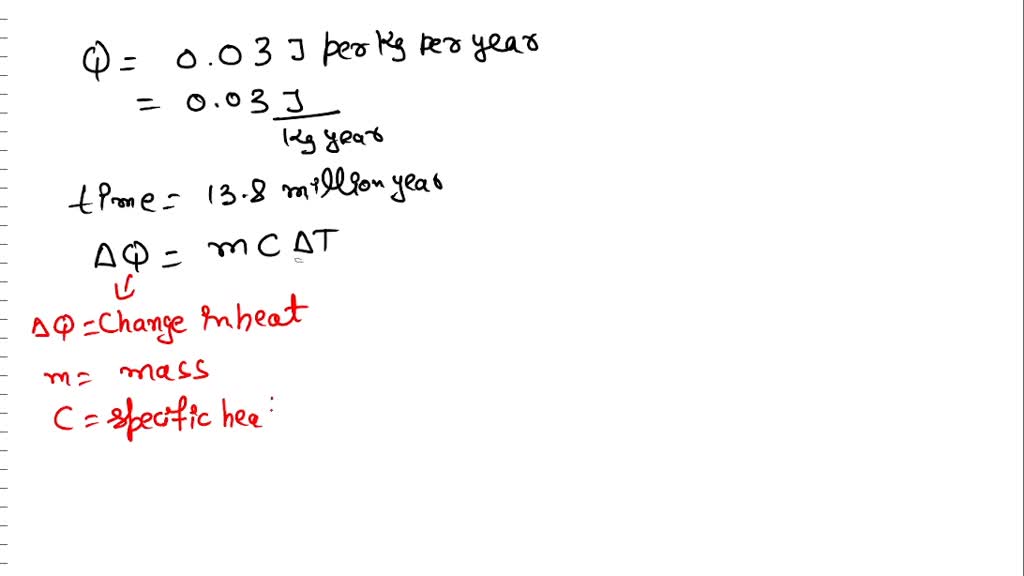 Q = 0.03 J per kg per year
= 0.03 J / kg year
time = 13.8 million year
ΔQ = m C ΔT
ΔQ = Change in heat
m = mass
C = specific hea